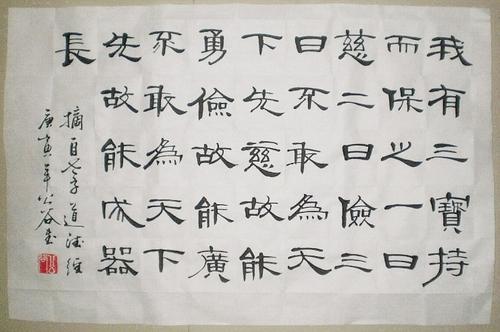 我有三寶持
而保之一曰
慈二曰儉三
曰不敢為天
下先慈故能
勇儉故能廣
不敢為天下
先故能成器
長
摘自老子道德經
庚寅年公谷書